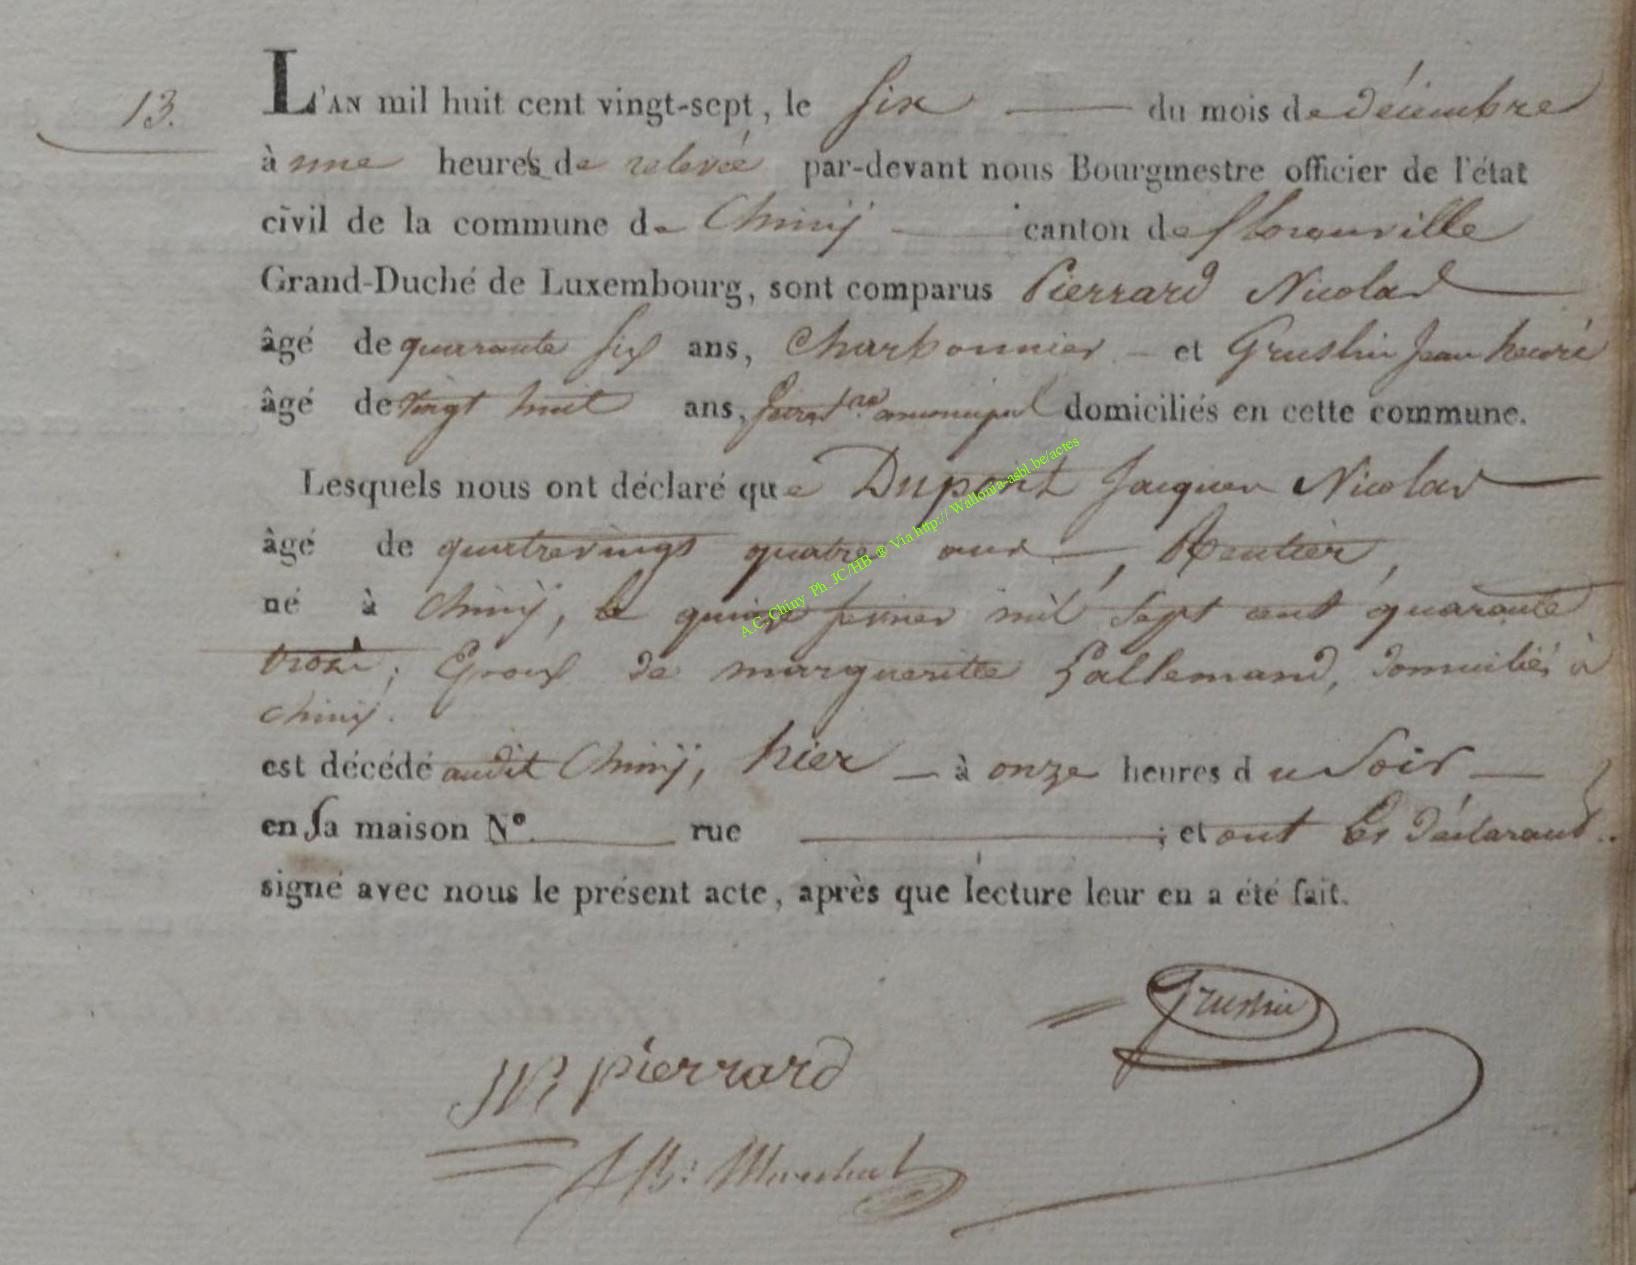 13.
L'AN mil huit cent vingt-sept, le six du mois de décembre
à une heures de relevée par-devant nous Bourgmestre officier de l'état
civil de la commune de Chinÿ canton de florenville
Grand-Duché de Luxembourg, sont comparus Pierrard Nicolas
âgé de quarante six ans, Charbonnier et Gruslin Jean henri
âgé de vingt huit ans, municipal domiciliés en cette commune.
Lesquels nous ont déclaré que Dupont Jacques Nicolas
âgé de quatrevingt quatre ans, Rentier,
né à Chinÿ, le quinze fevrier mil sept cent quarante
trois; Epoux de margueritte Lallemand, domiciliés à
chinÿ.
est décédé audit Chinÿ, hier à onze heures du Soir
en sa maison N° rue ; et ont les déclarans
signé avec nous le présent acte, après que lecture leur en a été fait.
Gruslin
pierrard
Marechal
A.C. Chiny Ph. JC/HB ® Via http:// Wallonia-asbl.be/actes